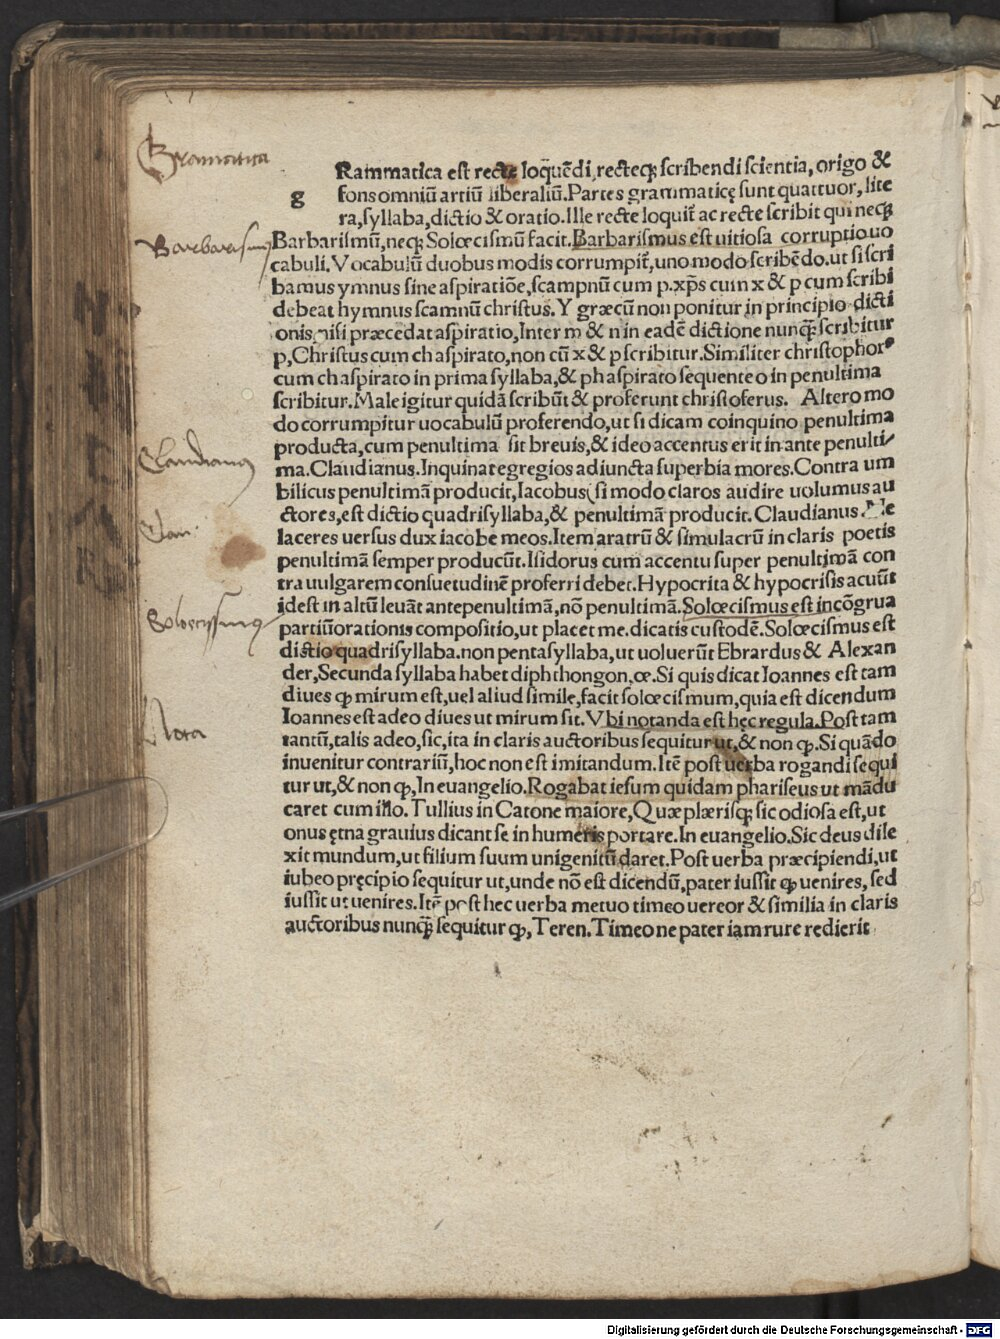 Gramatica
Rammatica est recte loq̃uēdi, recteqꝫ scribendi scientia, origo &
g fons omniū artiū liberaliū. Partes grammaticę sunt quattuor, lite
ra, syllaba, dictio & oratio. Ille recte loquit᷑ ac recte scribit qui neqꝫ
Barbarismus
Barbarismū, neqꝫ Solœcismū facit. Barbarismus est uitiosa corruptio uo
cabuli. Vocabulū duobus modis corrumpit᷑, uno modo scribēdo. ut si scri
bamus ymnus sine aspiratiōe, scampnū cum p. xp̄s cum x & p cum scribi
debeat hymnus scamnū christus. Y græcū non ponitur in principio dicti
onis, nisi præcedat aspiratio, Inter m & n in eadē dictione nunqꝫ̃ scribitur
p, Christus cum ch aspirato, non cū x & p scribitur. Similiter christophorꝰ
cum ch aspirato in prima syllaba, & ph aspirato sequente o in penultima
scribitur. Male igitur quidā scribūt & proferunt christoferus. Altero mo
do corrumpitur uocabulū proferendo, ut si dicam coinquino penultima
producta, cum penultima sit breuis, & ideo accentus erit in ante penulti
Claudianus
ma. Claudianus. Inquinat egregios adiuncta superbia mores. Contra um
bilicus penultimā producit, Iacobus si modo claros audire uolumus au
ctores, est dictio quadrisyllaba, & penultimā producit. Claudianus. Ne
Clau.
laceres uersus dux iacobe meos. Item aratrū & simulacrū in claris poetis
penultimā semper producūt. Isidorus cum accentu super penultimā con
tra uulgarem consuetudinē proferri debet. Hypocrita & hypocrisis acuūt
idest in altū leuāt antepenultimā, nō penultimā. Solœcismus est incōgrua
Solœcissmus
partiū orationis compositio, ut placet me. dicatis custodē. Solœcismus est
dictio quadrisyllaba. non pentasyllaba, ut uoluerūt Ebrardus & Alexan
der, Secunda syllaba habet diphthongon, œ. Si quis dicat Ioannes est tam
diues ꝙ mirum est, uel aliud simile, facit solœcismum, quia est dicendum
Ioannes est adeo diues ut mirum sit. Vbi notanda est hęc regula. Post tam
Nota
tantū, talis adeo, sic, ita in claris auctoribus sequitur ut, & non ꝙ. Si quādo
inuenitur contrariū, hoc non est imitandum. Itē post uerba rogandi sequi
tur ut, & non ꝙ, In euangelio. Rogabat iesum quidam phariseus ut mādu
caret cum illo. Tullius in Catone maiore, Quæ plærisqꝫ sic odiosa est, ut
onus ętna grauius dicant se in humeris portare. In euangelio. Sic deus dile
xit mundum, ut filium suum unigenitū daret. Post uerba præcipiendi, ut
iubeo pręcipio sequitur ut, unde nō est dicendū, pater iussit ꝙ uenires, sed
iussit ut uenires. Itē post hec uerba metuo timeo uereor & similia in claris
auctoribus nunqꝫ̃ sequitur ꝙ, Teren. Timeo ne pater iam rure redierit
Digitalisierung gefördert durch die Deutsche Forschungsgemeinschaft - DFG